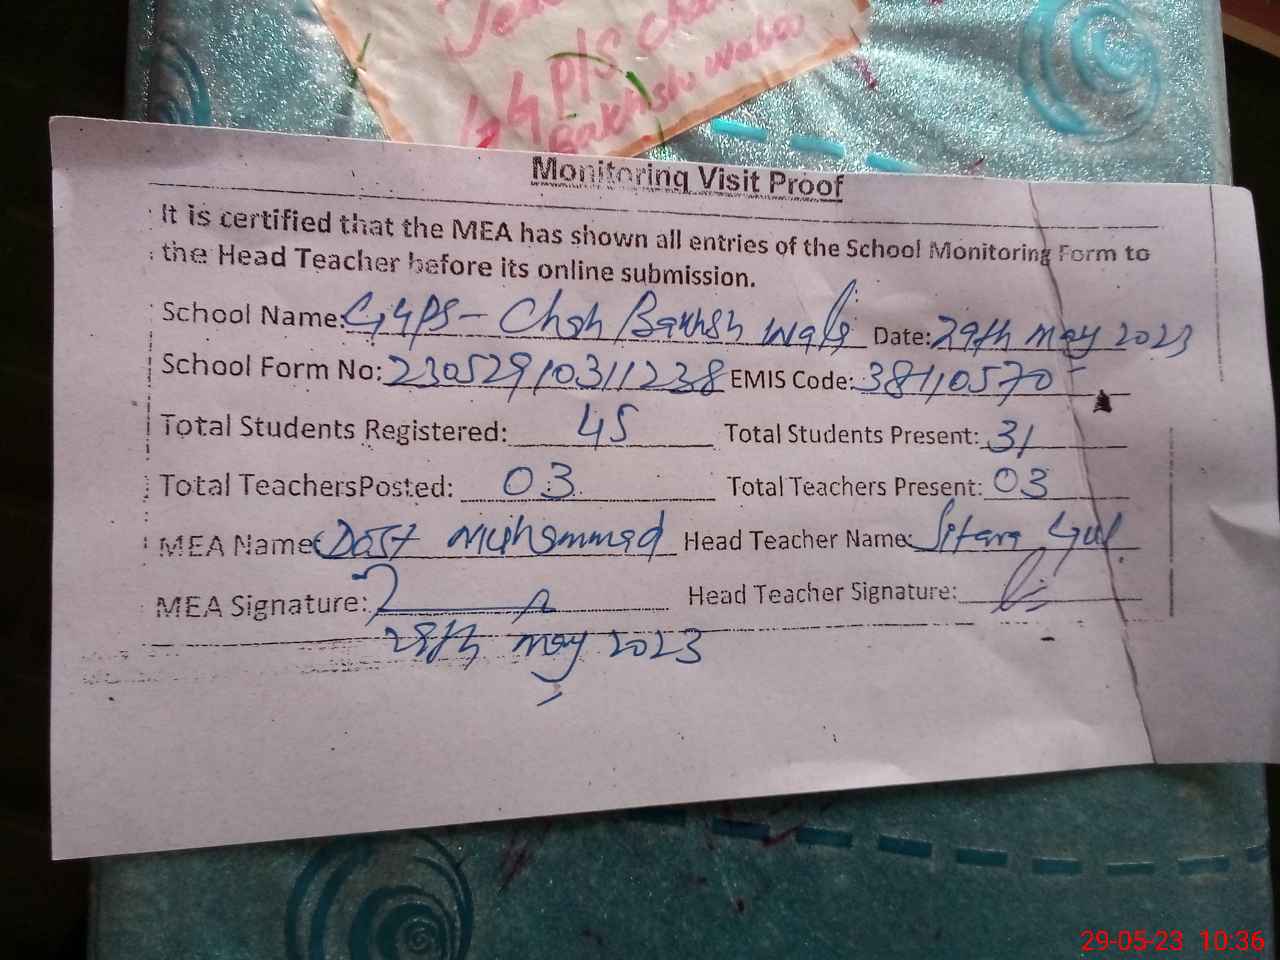 GGPS Chah
Bakhsh wala
Monitoring Visit Proof
It is certified that the MEA has shown all entries of the School Monitoring Form to
the Head Teacher before its online submission.
School Name: GGPS - Chah Bakhsh wala Date: 29th may 2023
School Form No: 23052910311238 EMIS Code: 38110570
Total Students Registered: 45 Total Students Present: 31
Total TeachersPosted: 03 Total Teachers Present: 03
MEA Name: Dost Muhammad Head Teacher Name: Sitara Gul
MEA Signature: Head Teacher Signature:
29th may 2023
29-05-23 10:36